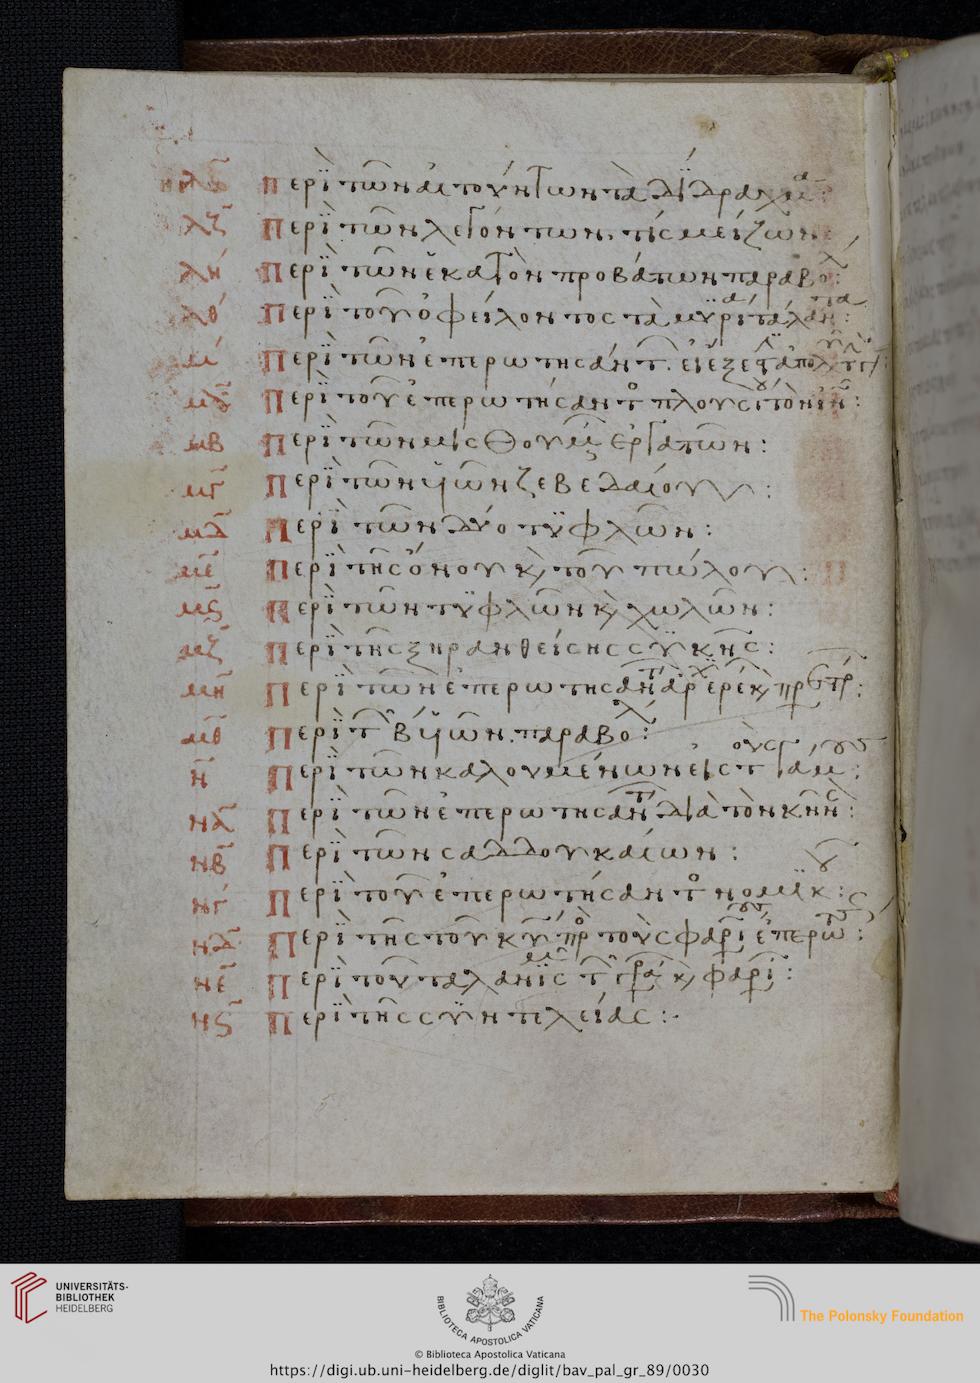 λϛ Περὶ τῶν αἰτούντων τὰ δίδραχμα:
λζ Περὶ τῶν λεγόντων, τίς μείζων
λη Περὶ τῶν ἑκατὸν προβάτων παραβολ
λθ Περὶ τοῦ ὀφείλοντος τὰ μύρια τάλαντα:
μ Περὶ τῶν ἐπερωτησάντ. εἰ ἔξεστ ἀπολῦσ τ γυ:
μα Περὶ τοῦ ἐπερωτήσαντο πλουσίου τὸν ιν:
μβ Περὶ τῶν μισθουμ ἐργατῶν:
μγ Περὶ τῶν ὑϊῶν ζεβεδαίου:
μδ Περὶ τῶν δύο τυφλῶν:
με Περὶ τῆς ὄνου κ, τοῦ πώλου:
μϛ Περὶ τῶν τυφλῶν κ, χωλῶν:
μζ Περὶ τῆς ξηρανθείσης συκῆς:
μη Περὶ τῶν ἐπερωτησάντ ἀρχερέ κ, πρεστρ:
μθ Περὶ τ β ὑϊῶν. παραβολ:
ν Περὶ τῶν καλουμένων εἰς τοὺς γάμους:
να Περὶ τῶν ἐπερωτησάντ διὰ τὸν κῆνς:
νβ Περὶ τῶν σαδδουκαίων:
νγ Περὶ τοῦ ἐπερωτήσαντο νομικ:
νδ Περὶ τῆς τοῦ κυ πρὸ τοὺς φαρι ἐπερωτς:
νε Περὶ τοῦ ταλανισμ τ γρα κ, φαρι:
νϛ Περὶ τῆς συντελείας:
UNIVERSITÄTS-
BIBLIOTHEK
HEIDELBERG
BIBLIOTECA APOSTOLICA VATICANA
The Polonsky Foundation
© Biblioteca Apostolica Vaticana
https://digi.ub.uni-heidelberg.de/diglit/bav_pal_gr_89/0030